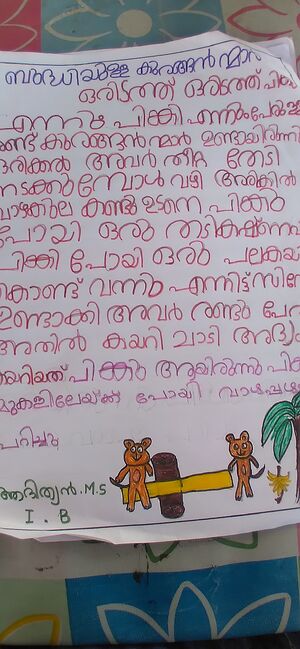 ബുദ്ധിയുള്ള കുരങ്ങൻന്മാർ
ഒരിടത്ത് ഒരിടത്ത് പിക്കു
എന്നും പിങ്കി എന്നും പേരുള്ള
രണ്ട് കുരങ്ങൻന്മാർ ഉണ്ടായിരുന്നു
ഒരിക്കൽ അവർ തീറ്റ തേടി
നടക്കുമ്പോൾ വഴി അരികിൽ
വാഴക്കുല കണ്ടു ഉടനെ പിക്കു
പോയി ഒരു തടികഷ്ണവും
പിങ്കി പോയി ഒരു പലകയും
കൊണ്ട് വന്നു എന്നിട്ട്
ഉണ്ടാക്കി അവർ രണ്ടും പേരും
അതിൽ കയറി ചാടി ആദ്യം
കയറിയത് പിക്കു ആയിരുന്നു
മുകളിലേയ്ക്ക് പോയി വാഴപ്പഴം
പറിച്ചു
ആദിത്യൻ.M.S
I.B